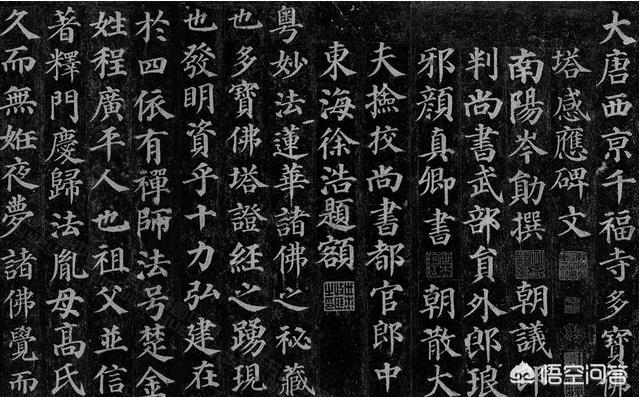 大唐西京千福寺多寶佛
塔感應碑文
南陽岑勛撰 朝議郎
判尚書武部員外郎琅
邪顏真卿書 朝散大
夫撿挍尚書都官郎中
東海徐浩題額
粵妙法蓮華諸佛之秘藏
也多寶佛塔證經之踴現
也發明資乎十力弘建在
於四依有禪師法号楚金
姓程廣平人也祖父並信
著釋門慶歸法胤母高氏
久而無姙夜夢諸佛覺而
悟空问答